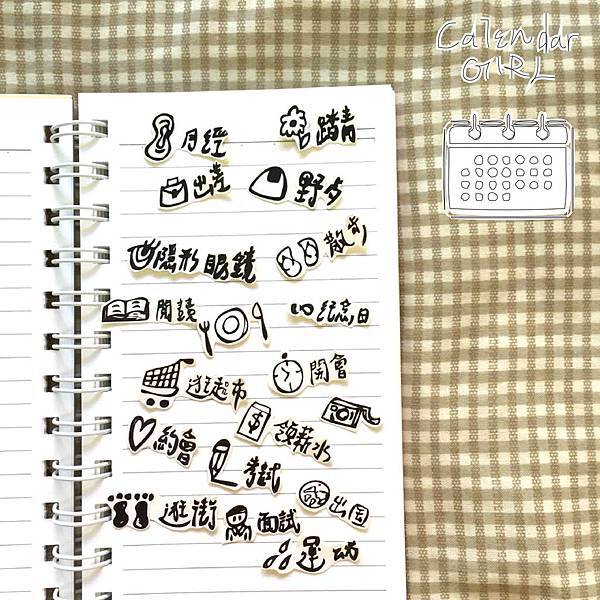 Calendar
GIRL
月經
踏青
出差
野餐
隱形眼鏡
散步
閱讀
紀念日
逛超市
開會
$
領薪水
約會
考試
出国
逛街
面試
運动